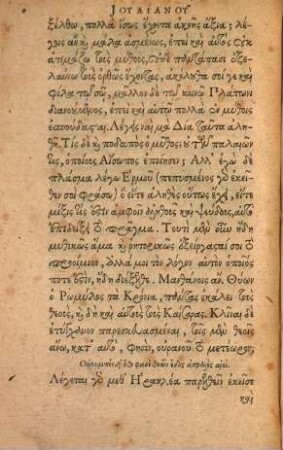 ΙΟΥΛΙΑΝΟΥ
ξέλθω, πολλὰ ἴσως ἔχοντα ἀκοῆς ἄξια; λέ-
γοις ἂν καὶ μάλα ἀσμένως, ἐπεὶ καὶ αὐτὸς Οὐκ
ἀτιμάζω τοὺς μύθους, Οὐδὲ παντάπασι ἐξε-
λαύνω τοὺς ὀρθῶς ἔχοντας, ἀκόλουθα σοί τε καὶ
φίλῳ τῷ σῷ, μᾶλλον δὲ τῷ κοινῷ Πλάτωνι
διανοούμενος, ἐπεὶ καὶ αὐτῷ πολλὰ ἐν μύθοις
ἐσπούδασται. Λέγεις ναὶ μὰ Δία ταῦτα ἀλη-
θῆ. Τίς δὲ καὶ ποδαπὸς ὁ μῦθος; οὐ τῶν παλαιῶν
τις, ὁποίους Αἴσωπος ἐποίησεν; Ἀλλ' ἐγὼ δὲ
πλάσμα λέγω Ἑρμοῦ (πεπυσμένος γὰρ ἐκεῖ-
θεν σοι φράσω) εἴτε ἀληθὲς οὕτως ἔχει, εἴτε
μίξις τις ἐστὶν ἀμφοῖν ἀληθοῦς καὶ ψεύδους, αὐτὸ
τὸ πρᾶγμα. Τουτὶ μὲν οὖν ἤδη
μυθικῶς ἅμα καὶ ῥητορικῶς ἐξείργασταί σοι τὸ
προοίμιον, Ἀλλά μοι τὸν λόγον αὐτὸν ὁποῖός
ποτέ ἐστιν, ἤδη διέξελθε. Μανθάνοις ἄν. Θύων
ὁ Ῥωμύλος τὰ Κρόνια, πάντας ἐκάλει τοὺς
θεοὺς, καὶ δὴ καὶ αὐτοὺς τοὺς Καίσαρας. Κλῖναι δὲ
ἐτύγχανον παρεσκευασμέναι, τοῖς μὲν θεοῖς
ἄνω, κατ' αὐτὸ, φησὶν, οὐρανοῦ τὸ μετέωρον,
Οὔλυμπόνδ' ὅθι φασὶ θεῶν ἕδος ἀσφαλὲς αἰεί.
Λέγεται γὰρ μεθ' Ἡρακλέα παρελθεῖν ἐκεῖσε
καὶ